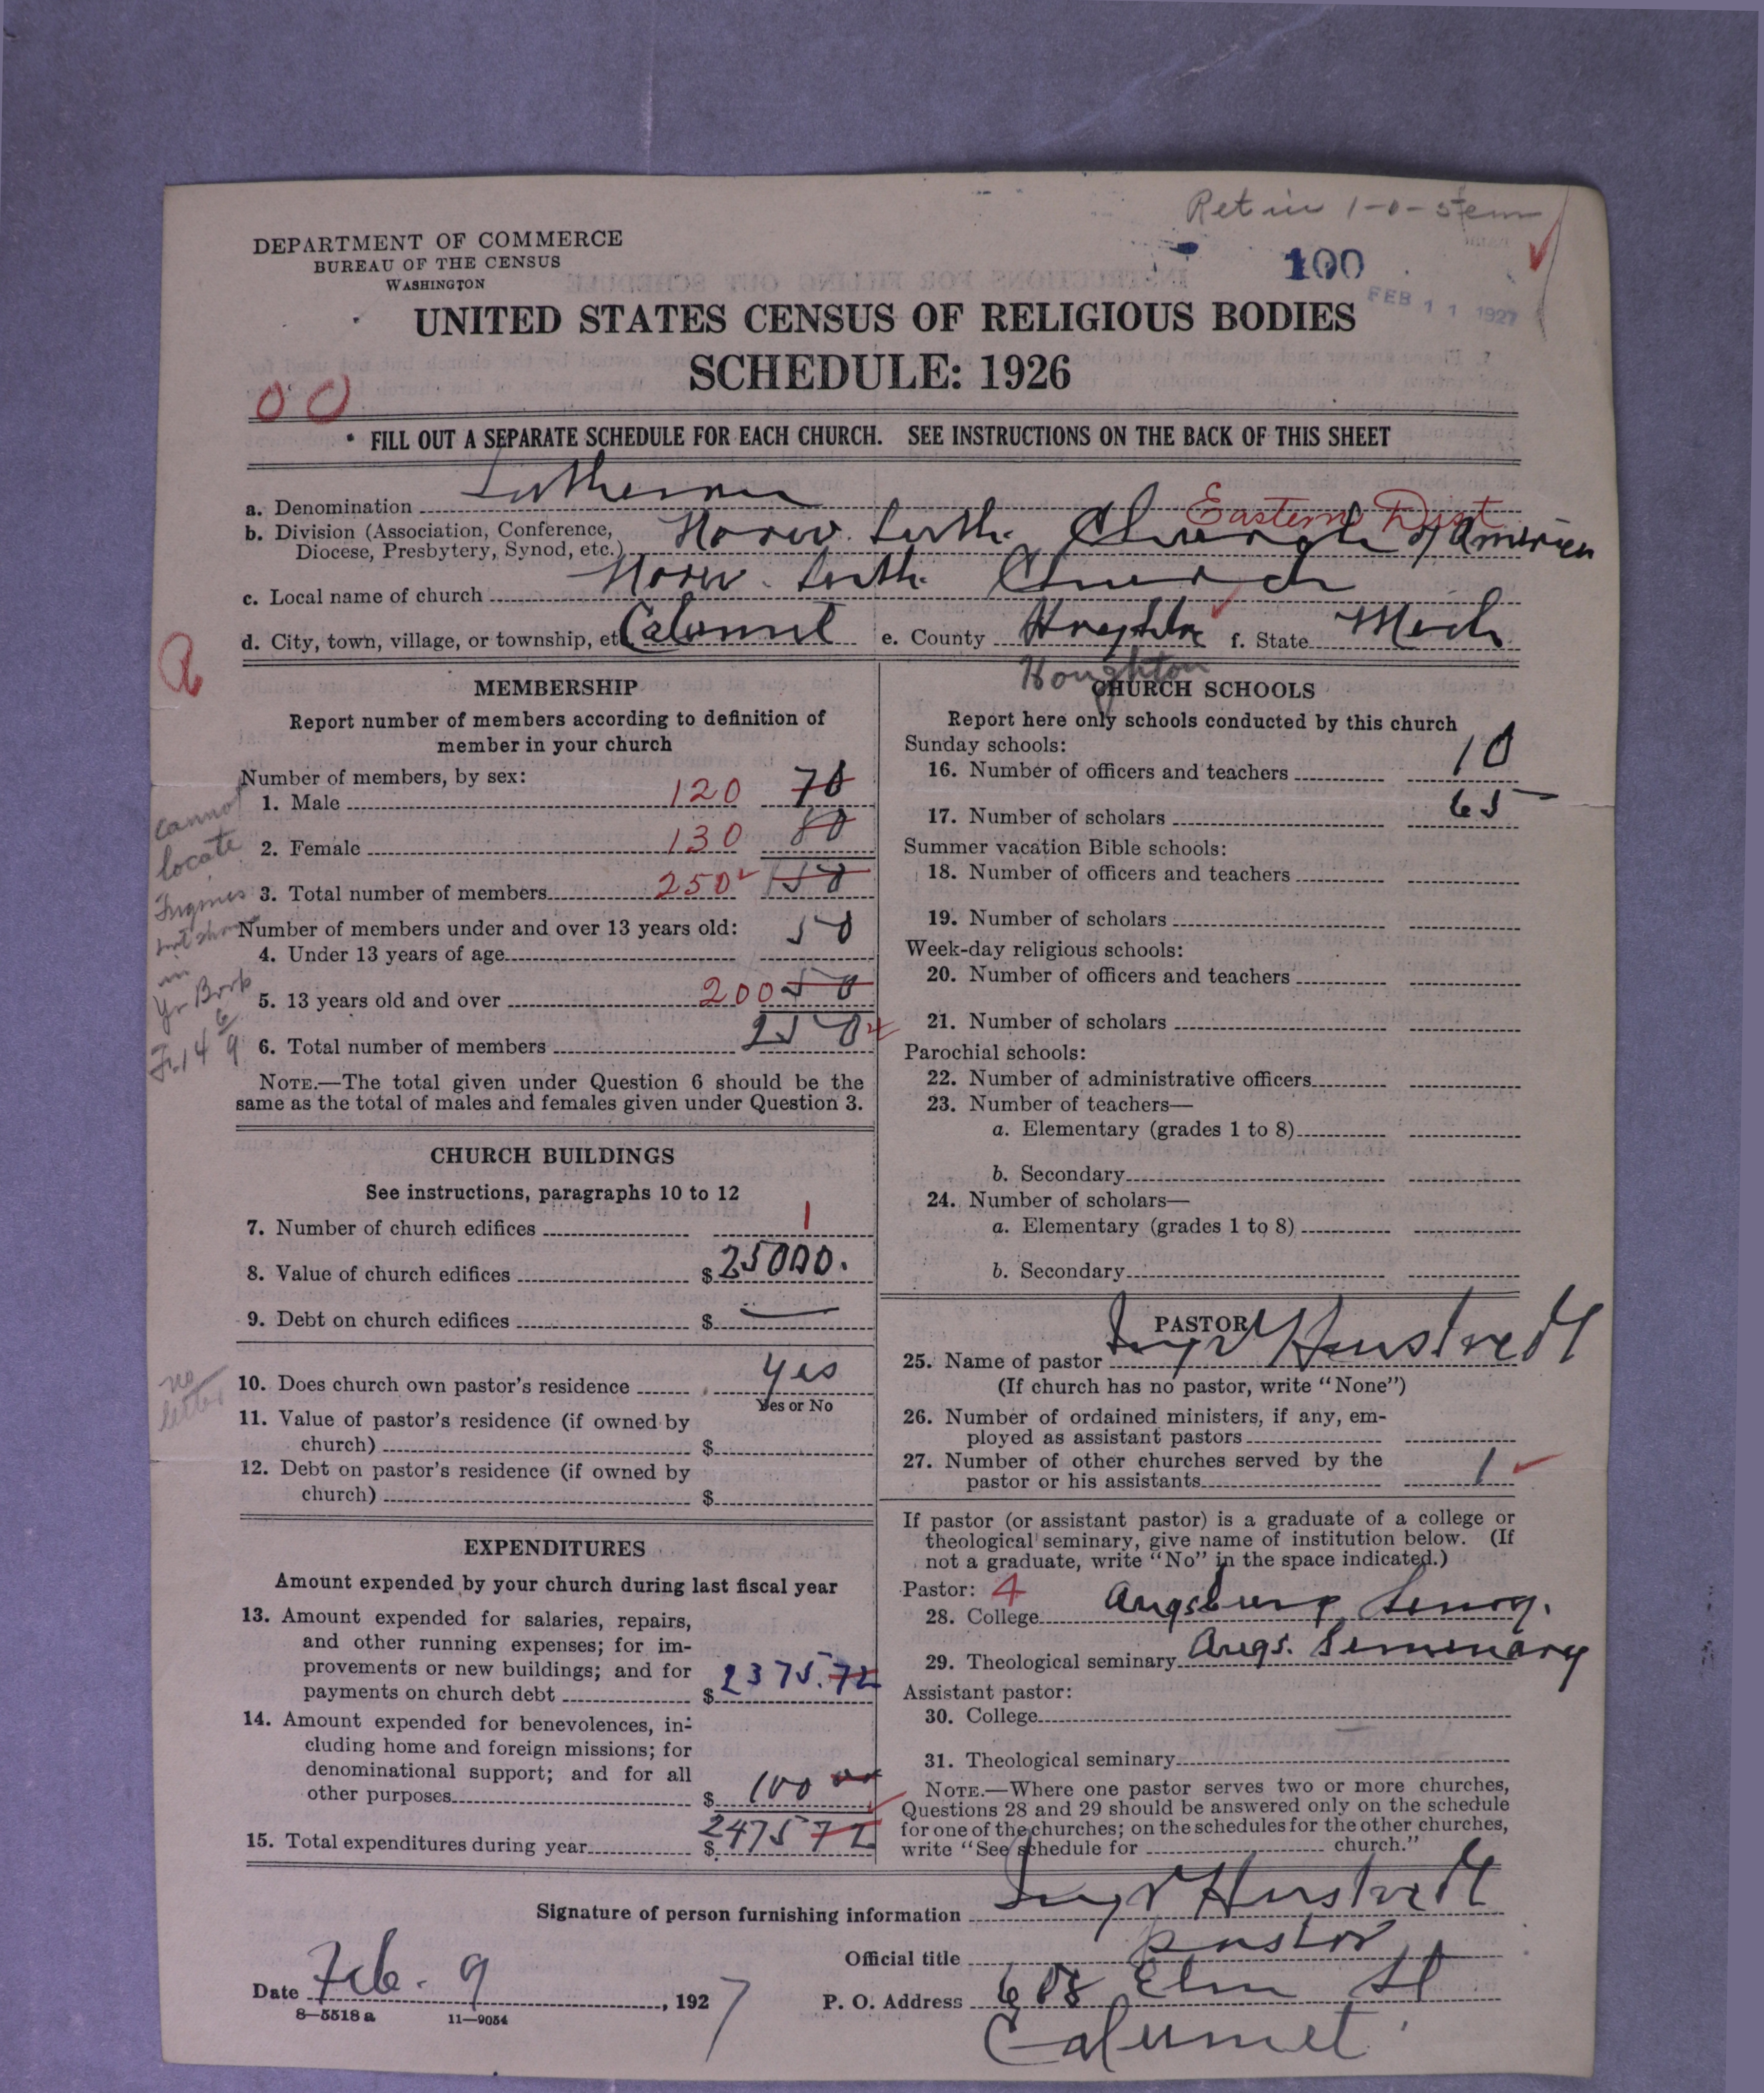 Ret in 1-0-5
100
FEB 11 1927
DEPARTMENT OF COMMERCE
BUREAU OF THE CENSUS
WASHINGTON
UNITED STATES CENSUS OF RELIGIOUS BODIES
SCHEDULE: 1926
00
FILL OUT A SEPARATE SCHEDULE FOR EACH CHURCH. SEE INSTRUCTIONS ON THE BACK OF THIS SHEET
a. Denomination Lutheran
Eastern Dist
b. Division (Association, Conference, Diocese, Presbytery, Synod, etc.) Norw. Luth. Church of America
c. Local name of church Norw. Luth. Church
d. City, town, village, or township, etc. Calumet e. County Houghton f. State Mich
Houghton
MEMBERSHIP
Report number of members according to definition of
member in your church
Number of members, by sex:
1. Male 120 70
2. Female 130 80
3. Total number of members 250 150
Number of members under and over 13 years old:
4. Under 13 years of age 50
5. 13 years old and over 200 50
6. Total number of members 250
cannot
locate
in
Yr Book
NOTE.—The total given under Question 6 should be the
same as the total of males and females given under Question 3.
CHURCH BUILDINGS
See instructions, paragraphs 10 to 12
7. Number of church edifices 1
8. Value of church edifices $25000.
9. Debt on church edifices $ —
no
letter
10. Does church own pastor's residence yes
Yes or No
11. Value of pastor's residence (if owned by
church) $
12. Debt on pastor's residence (if owned by
church) $
EXPENDITURES
Amount expended by your church during last fiscal year
13. Amount expended for salaries, repairs,
and other running expenses; for im-
provements or new buildings; and for
payments on church debt $ 2375.72
14. Amount expended for benevolences, in-
cluding home and foreign missions; for
denominational support; and for all
other purposes $ 100 00
15. Total expenditures during year $ 2475 72
CHURCH SCHOOLS
Report here only schools conducted by this church
Sunday schools:
16. Number of officers and teachers 10
17. Number of scholars 65
Summer vacation Bible schools:
18. Number of officers and teachers
19. Number of scholars
Week-day religious schools:
20. Number of officers and teachers
21. Number of scholars
Parochial schools:
22. Number of administrative officers
23. Number of teachers—
a. Elementary (grades 1 to 8)
b. Secondary
24. Number of scholars—
a. Elementary (grades 1 to 8)
b. Secondary
PASTOR
25. Name of pastor
(If church has no pastor, write "None")
26. Number of ordained ministers, if any, em-
ployed as assistant pastors
27. Number of other churches served by the
pastor or his assistants 1
If pastor (or assistant pastor) is a graduate of a college or
theological seminary, give name of institution below. (If
not a graduate, write "No" in the space indicated.)
Pastor: 4
28. College Augsburg
29. Theological seminary Augs. Seminary
Assistant pastor:
30. College
31. Theological seminary
NOTE.—Where one pastor serves two or more churches,
Questions 28 and 29 should be answered only on the schedule
for one of the churches; on the schedules for the other churches,
write "See schedule for church."
Signature of person furnishing information
Official title pastor
Date Feb. 9, 1927 P. O. Address 608 Elm St
Calumet
8—5518 a 11—9054